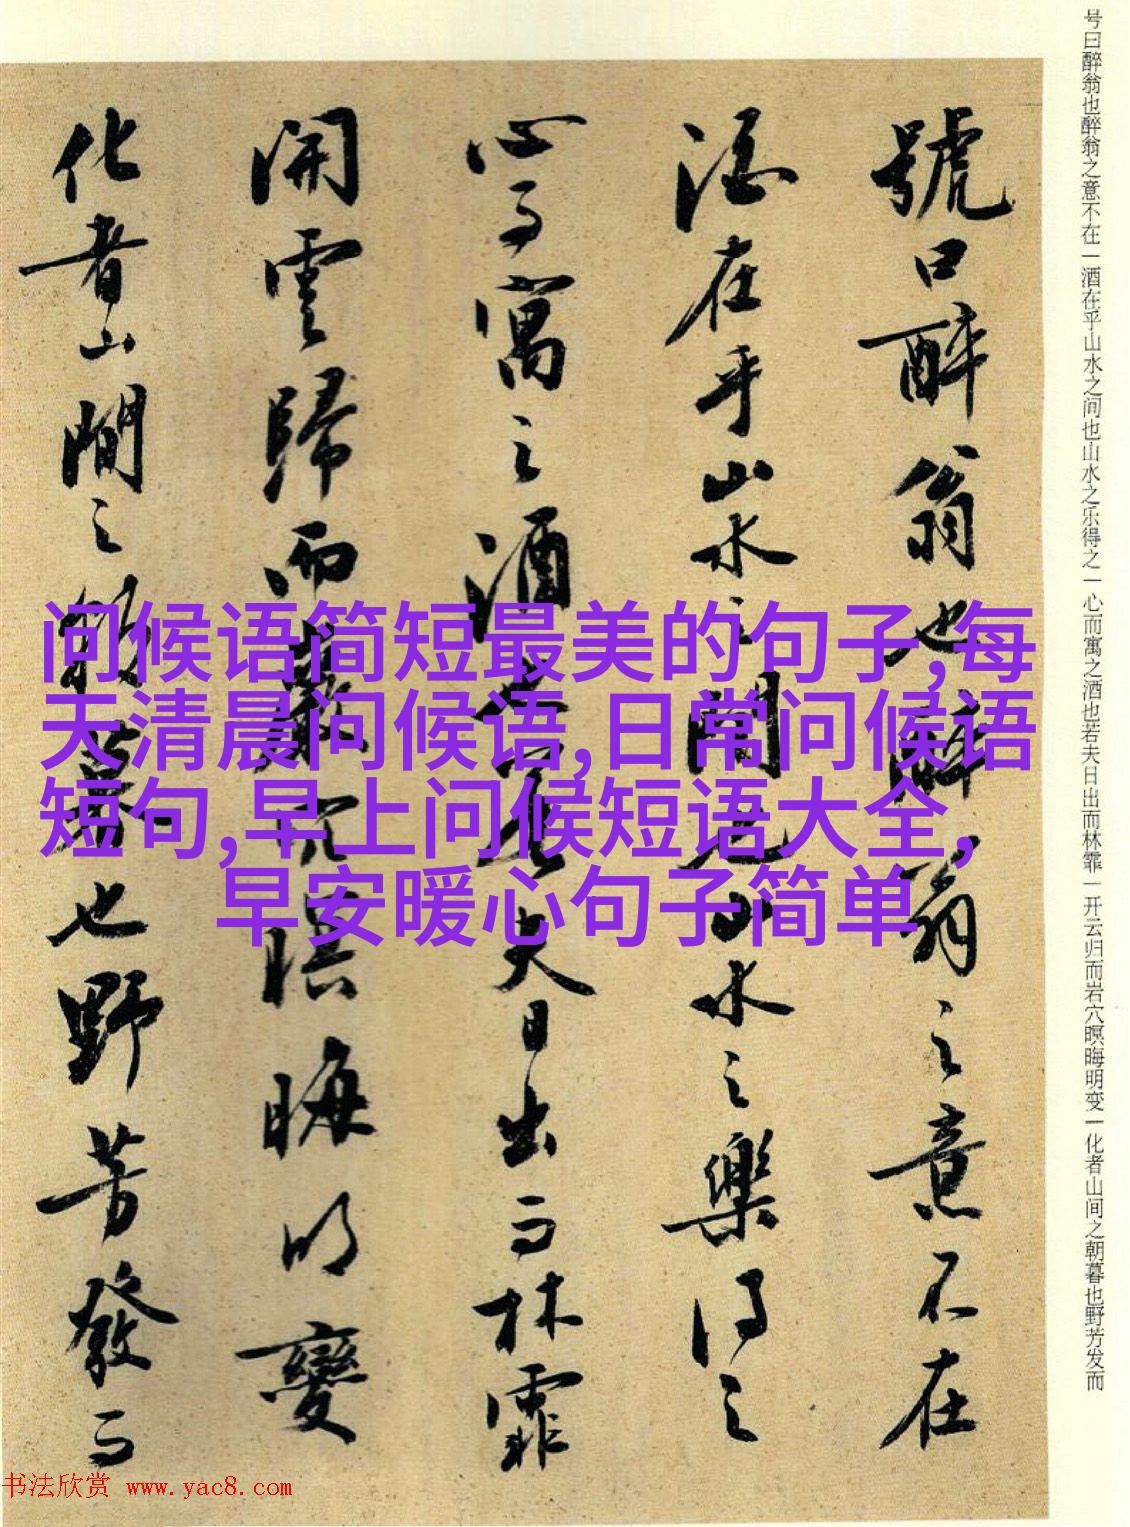 号曰醉翁也醉翁之意不在一酒在乎山水之间也山水之乐得之一心而寓之酒也若夫日出而林霏一开云归而岩穴暝晦明变一化者山间之朝暮也野芳发而
號曰醉翁也醉翁之意不在
酒在乎山水之間也山水之樂得之
心而寓之酒也若夫日出而林霏
開雲歸而巖穴暝晦明變
化者山間之朝暮也野芳發而
问候语简短最美的句子,每
天清晨问候语,日常问候语
短句,早上问候短语大全,
早安暖心句子简单
书法欣赏 www.yac8.com